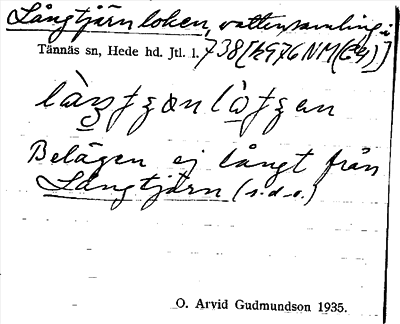 Långtjärnloken, vattensamling i
Tännäs sn, Hede hd. Jtl. l. 738 [k976 NM (C4)]
Belägen ej långt från
Långtjärn (s.d.o.)
O. Arvid Gudmundson 1935.